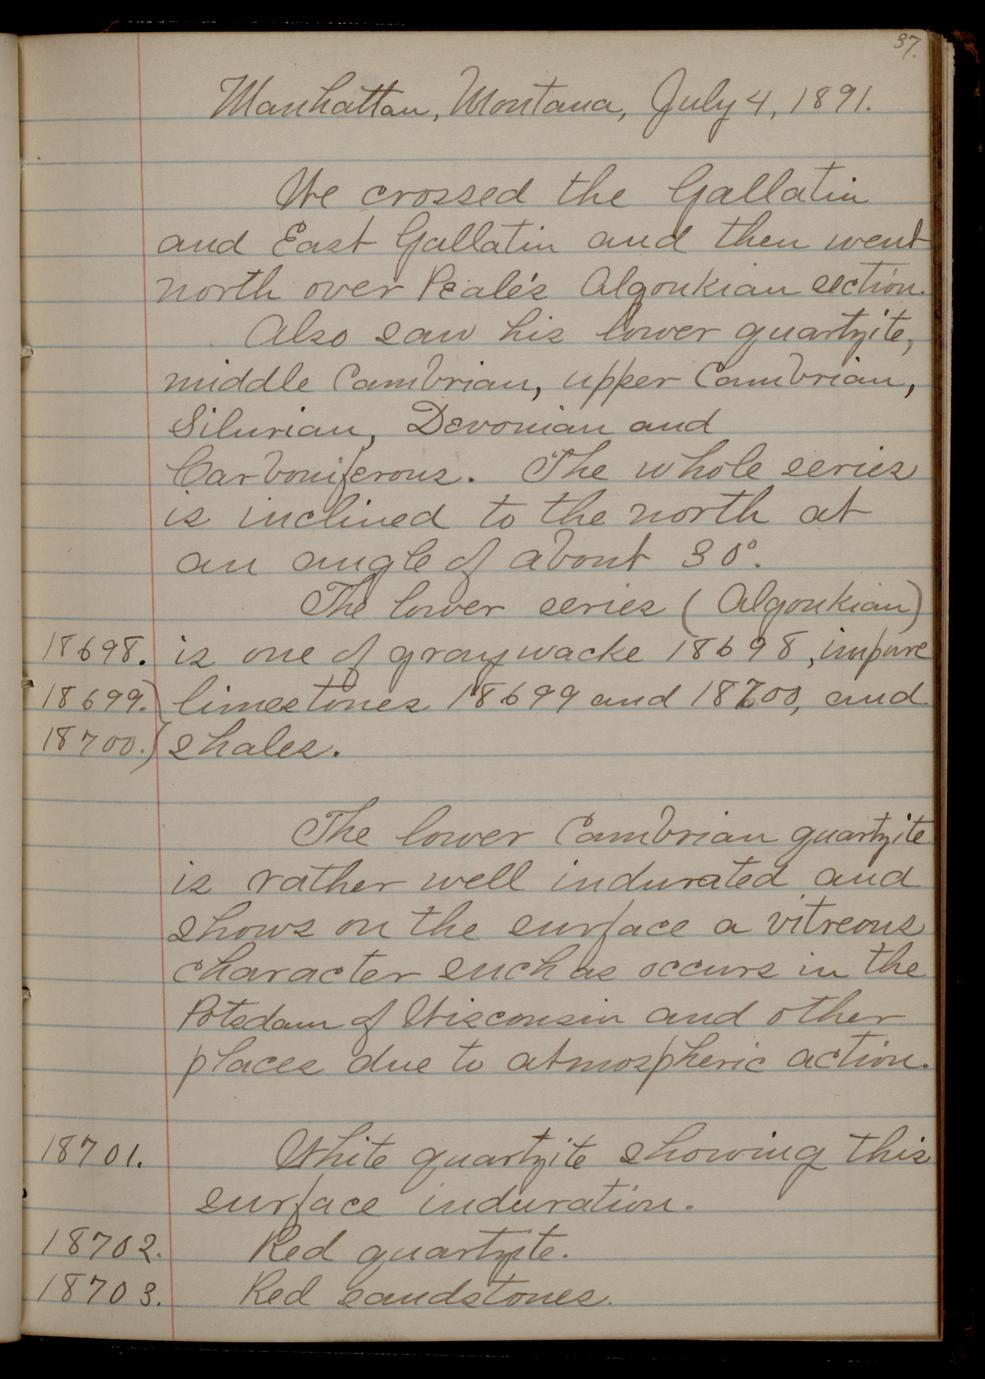 37.
Manhattan, Montana, July 4, 1891.
We crossed the Gallatin
and East Gallatin and then went
north over Peale's Algonkian section.
Also saw his lower quartzite,
middle Cambrian, upper Cambrian,
Silurian, Devonian and
Carboniferous. The whole series
is inclined to the north at
an angle of about 30°.
The lower series (Algonkian)
18698. is one of graywacke 18698, impure
18699.) limestones 18699 and 18700, and
18700.) shales.
The lower Cambrian quartzite
is rather well indurated and
shows on the surface a vitreous
character such as occurs in the
Potsdam of Wisconsin and other
places due to atmospheric action.
18701. White quartzite showing this
surface induration.
18702. Red quartzite.
18703. Red sandstones.